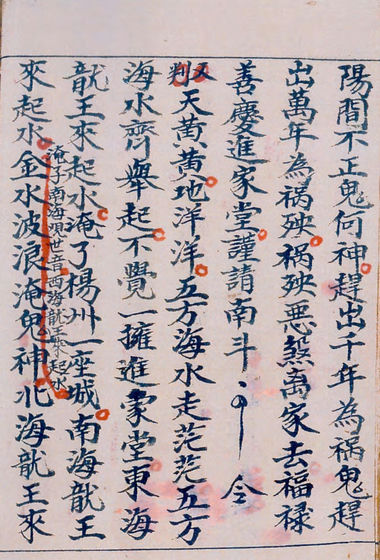 陽間不正鬼何神趕出千年為禍鬼趕
出萬年為祸殃祸殃惡煞离家去福禄
善慶進家堂謹請南斗
令
五判天黄黄地洋洋五方海水走茫茫五方
海水齊舉起不覺一擁進家堂東海
龍王來起水淹了楊州一座城南海龍王
淹了南海現世音西海龍王來起水
來起水金水波浪淹鬼神北海龍王來